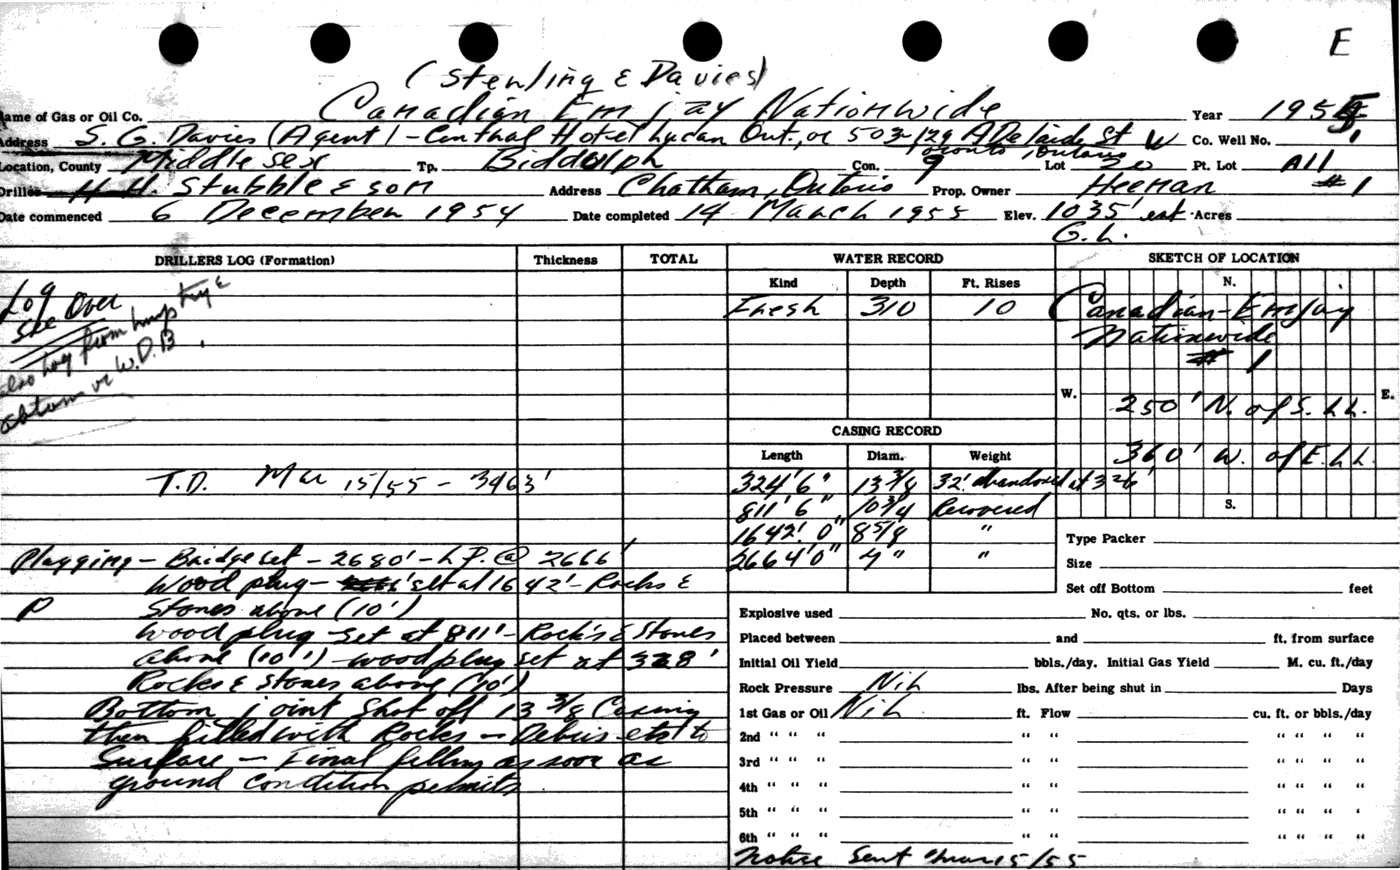 E
(Sterling & Davies)
Name of Gas or Oil Co. Canadian Emjay Nationwide Year 1955
Address S. G. Davies (Agent) - Central Hotel Lucan Ont., or 503-129 Adelaide St W Co. Well No. 1
Toronto, Ontario
Location, County Middlesex Tp. Biddulph Con. 9 Lot 30 Pt. Lot All
Driller H. H. Stubble & son Address Chatham, Ontario Prop. Owner Heenan #1
Date commenced 6 December 1954 Date completed 14 March 1955 Elev. 1035' est Acres
G.L.
DRILLERS LOG (Formation) Thickness TOTAL WATER RECORD SKETCH OF LOCATION
Kind Depth Ft. Rises N.
Log
See Over
Fresh 310 10
Canadian-Emjay
Nationwide
# 1
also Log from
W.D.B.
W. E.
250' N. of S.L.L.
360' W. of E.L.L.
S.
CASING RECORD
Length Diam. Weight
T.D. Mar 15/55 - 3463'
324'6" 13 3/8 32' abandoned at 326'
811'6" 10 3/4 Recovered
1642'0" 8 5/8 "
2664'0" 7" "
Type Packer
Size
Set off Bottom feet
Plugging - Bridge set - 2680' - L.P. @ 2666'
Wood plug - set at 1642' - Rocks &
P Stones above (10')
Wood plug - set at 811' - Rocks & Stones
above (10') - wood plug set at 328'
Rocks & Stones above (10')
Bottom joint shot off 13 3/8 Casing
then filled with Rocks - Debris etc to
Surface - Final filling as soon as
ground condition permits
Explosive used No. qts. or lbs.
Placed between and ft. from surface
Initial Oil Yield bbls./day. Initial Gas Yield M. cu. ft./day
Rock Pressure Nil lbs. After being shut in Days
1st Gas or Oil Nil ft. Flow cu. ft. or bbls./day
2nd " " " " " " " " "
3rd " " " " " " " " "
4th " " " " " " " " "
5th " " " " " " " " "
6th " " " " " " " " "
Notice Sent Mar 15/55